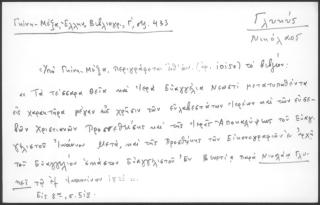 Γκίνη-Μέξα, Ἑλλην. Βιβλιογρ., Γ', σελ. 433
Γλυκύς
Νικόλαος
Ὑπὸ Γκίνη-Μέξα, περιγράφεται τὸ βιβλίον:
« Τὰ τέσσαρα θεῖα καὶ ἱερὰ Εὐαγγέλια Νεωστὶ μετατυπωθέντα
εἰς χαρακτῆρα μέγαν εἰς χρῆσιν τῶν εὐλαβεστάτων Ἱερέων καὶ τῶν εὐσε-
βῶν Χριστιανῶν Προσετέθη καὶ τῆς Ἱερᾶς Ἀποκαλύψεως τοῦ Εὐαγ-
γελιστοῦ Ἰωάννου Μετὰ καὶ τῆς Προσθήκης τῶν
τοῦ Εὐαγγελίου ἑκάστου Εὐαγγελιστοῦ Ἐν Βενετίᾳ παρὰ Νικολάῳ Γλυ-
κεῖ τῷ ἐξ Ἰωαννίνων
Εἰς 8ον, σ.